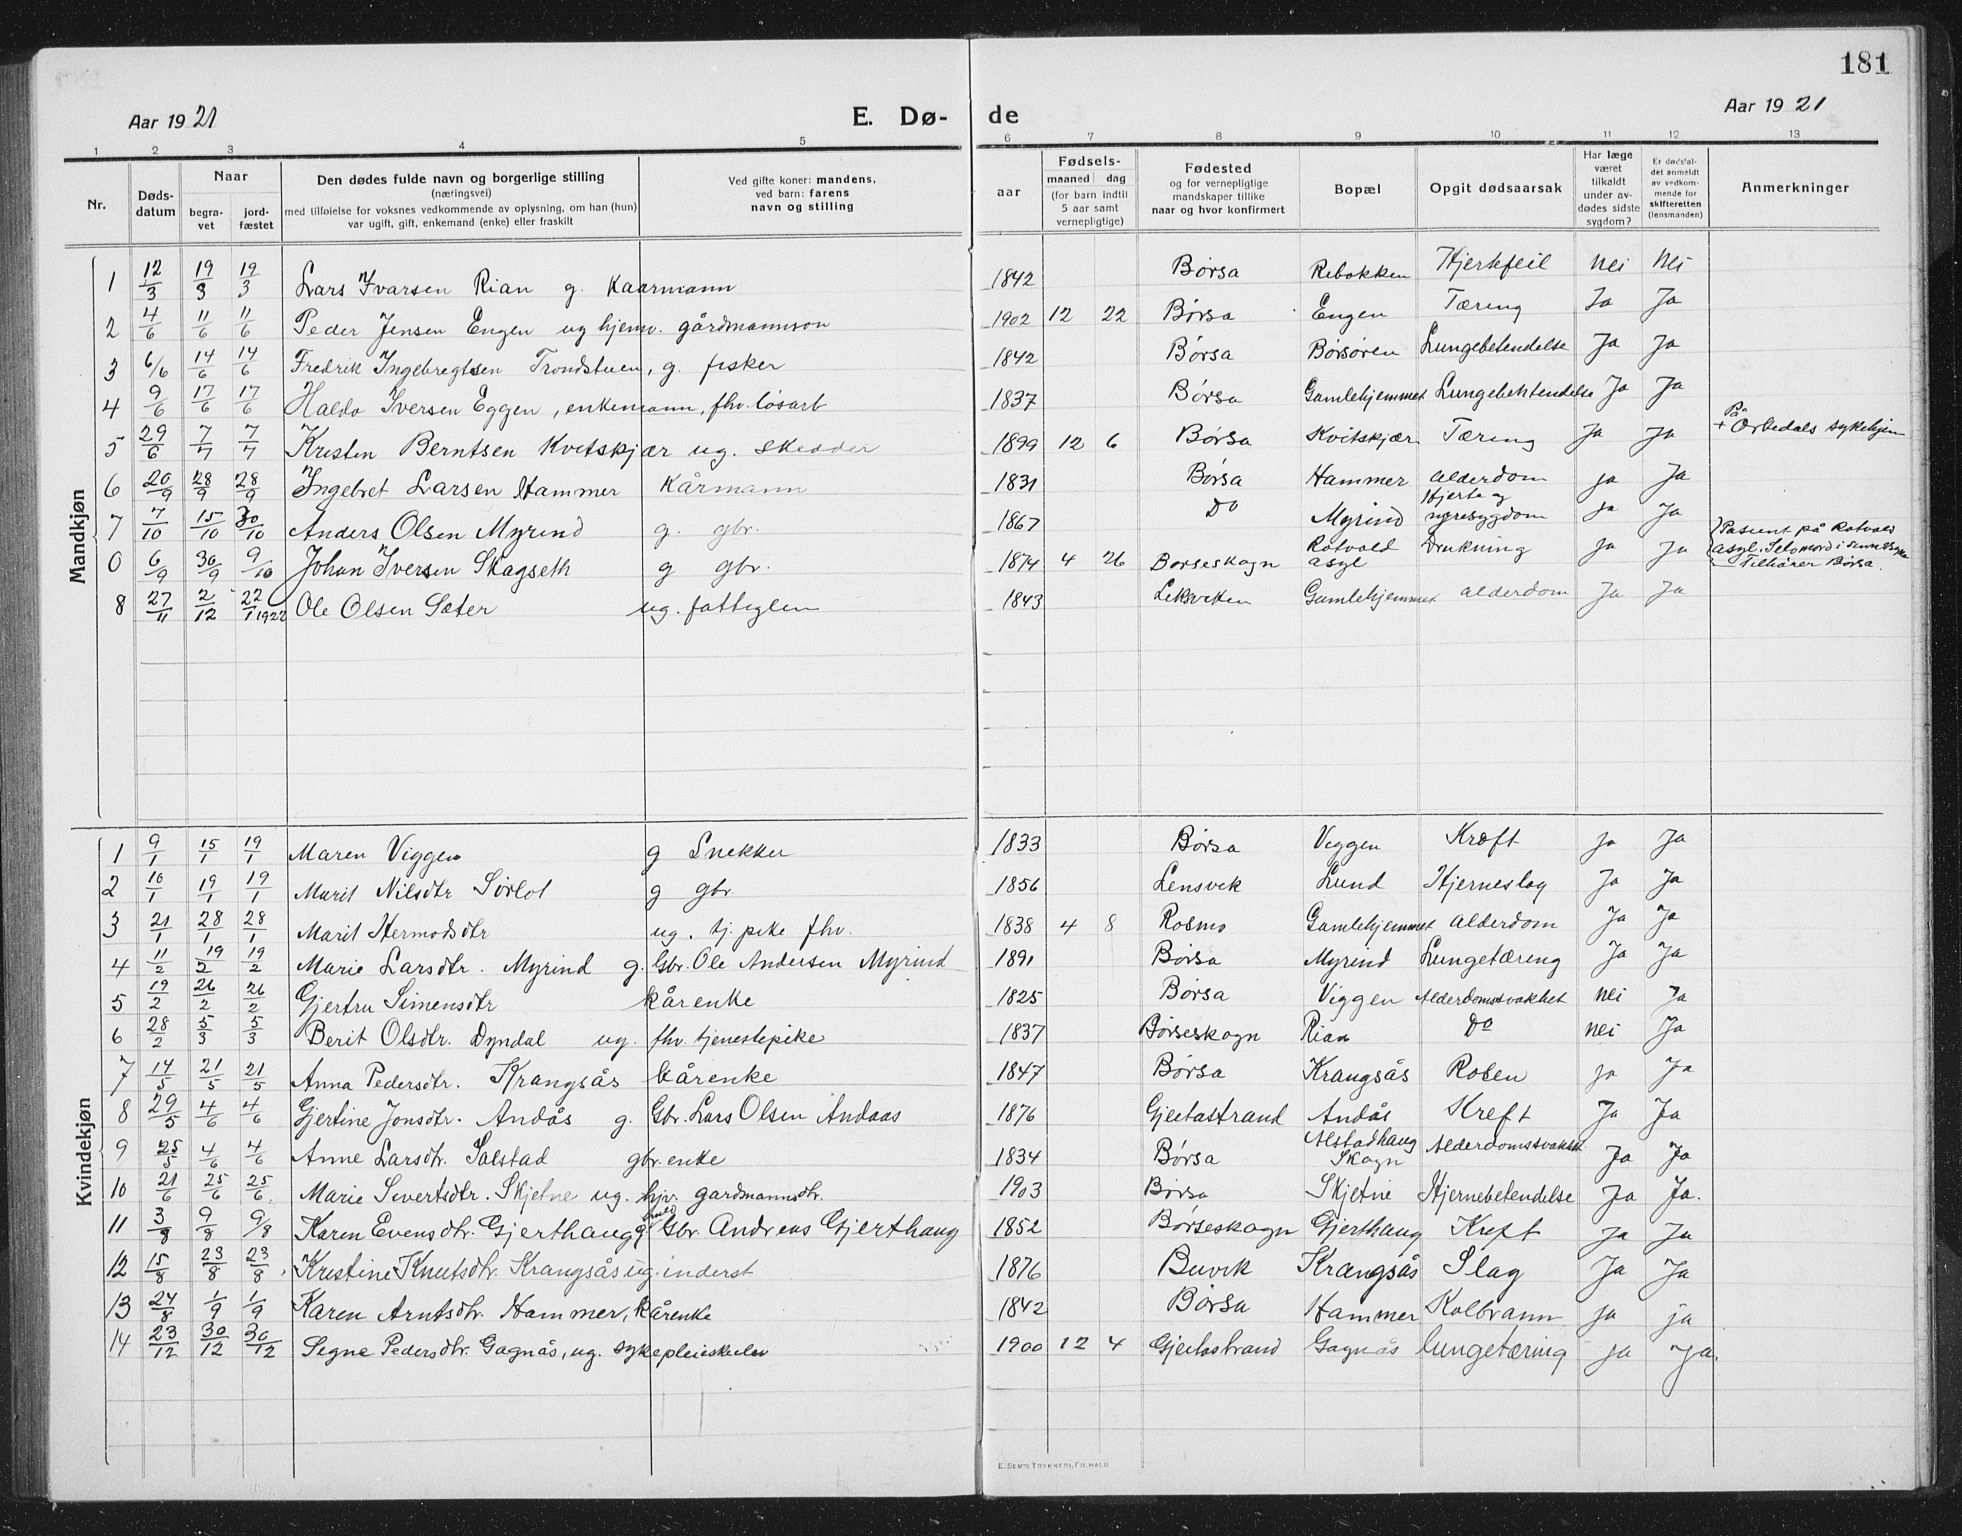 181
Aar 1921 E. Dø- de Aar 1921
1 2 3 4 5 6 7 8 9 10 11 12 13
Nr. Døds-datum Naar begra-vet jord-fæstet Den dødes fulde navn og borgerlige stilling (næringsvei) med tilføielse for voksnes vedkommende av oplysning, om han (hun) var ugift, gift, enkemand (enke) eller fraskilt Ved gifte koner: mandens, ved barn: farens navn og stilling aar Fødsels- maaned dag (for barn indtil 5 aar samt vernepligtige) Fødested og for vernepligtige mandskaper tillike naar og hvor konfirmert Bopæl Opgit dødsaarsak Har læge været tilkaldt under av-dødes sidste sygdom? Er dødsfal-det anmeldt av vedkom-mende for skifteretten (lensmanden) Anmerkninger
Mandkjøn
1 12/3 19/3 19/3 Lars Ivarsen Rian g. Kaarmann 1842 Børsa Rebakken Hjertefeil Nei Nei
2 4/6 11/6 11/6 Peder Jensen Engen ug hjemv. gårdmannsøn 1902 12 22 Børsa Engen Tæring Ja Ja
3 6/6 14/6 14/6 Fredrik Ingebregtsen Trondstuen, g. fisker 1842 Børsa Børsøren Lungebetendelse Ja Ja
4 9/6 17/6 17/6 Haldo Iversen Eggen, enkemann, fhv. løsarb 1837 Børsa Gamlehjemmet Lungebektendelse Ja Ja
5 29/6 7/7 7/7 Kristen Berntsen Kvitskjær ug. 1899 12 6 Børsa Kvitskjær Tæring Ja Ja På + sykehjem
6 20/9 28/9 28/9 Ingebret Larsen Hammer Kårmann 1831 Børsa Hammer alderdom ja Ja
7 7/10 15/10 30/10 Anders Olsen Myrind g. gbr. 1867 Do Myrind Hjerte og nyresygdom ja Ja
0 6/9 30/9 9/10 Johan Iversen Skagseth g gbr. 1874 4 26 Børseskogn Rotvold asyl Drukning ja Ja Pasient på Rotvold asyl. Selvmord i Tilhører Børsa.
8 27/11 2/12 22/1 1922 Ole Olsen Sæter ug. fattiglem 1843 Leksviken Gamlehjemmet alderdom Ja Ja
Kvindekjøn
1 9/1 15/1 19/1 Maren Viggen g Snekker 1833 Børsa Viggen Kræft ja Ja
2 10/1 19/1 19/1 Marit Nilsdtr Sørlot g gbr. 1856 Lensvik Lund Hjerneslag Ja Ja
3 21/1 28/1 28/1 Marit Hermodsdtr ug. tj. pike fhv. 1838 4 8 Rosmo Gamlehjemmet alderdom Ja Ja
4 11/2 19/2 19/2 Marie Larsdtr. Myrind g. Gbr. Ole Andersen Myrind 1891 Børsa Myrind Lungetæring Ja Ja
5 19/2 26/2 26/2 Gjertru Simensdtr kårenke 1825 Børsa Viggen Alderdomssvakhet nei Ja
6 28/2 5/3 5/3 Berit Olsdtr. Dyndal ug. fhv. tjenestepike 1837 Børseskogn Rian Do nei Ja
7 14/5 21/5 21/5 Anna Pedersdtr. Krangsås kårenke 1847 Børsa Krangsås Rosen ja Ja
8 29/5 4/6 4/6 Gjertine Jonsdtr. Andås g. Gbr. Lars Olsen Andaas 1876 Gjeitastrand Andås Kreft Ja Ja
9 25/5 4/6 4/6 Anne Larsdtr. Salstad gbr. enke 1834 Børsa Alstadhaug Skogn Alderdomssvakhet Ja Ja
10 21/6 25/6 25/6. Marie Sivertsdtr. Skjetne ug. hjv. gardmannsdtr. 1903 Børsa Skjetne Hjernebetendelse Ja Ja.
11 3/8 9/8 9/8 Karen Evensdtr. Gjerthaug g. m/ed Gbr. Andreas Gjerthaug 1852 Børseskogn Gjerthaug Kreft Ja Ja
12 15/8 23/8 23/8. Kristine Knutsdtr. Krangsås ug. inderst 1876 Buvik Krangsås Slag Ja Ja
13 24/8 1/9 1/9 Karen Arntsdtr. Hammer, kårenke 1842 Børsa Hammer Kolbrann ja ja
14 23/12 30/12 30/12 Signe Pedersdtr. Gagnås, ug. sykepleieskelev 1900 12 4 Gjeitastrand Gagnås lungetæring ja Ja.
E. SEM'S TRYKKERI, FR.HALD